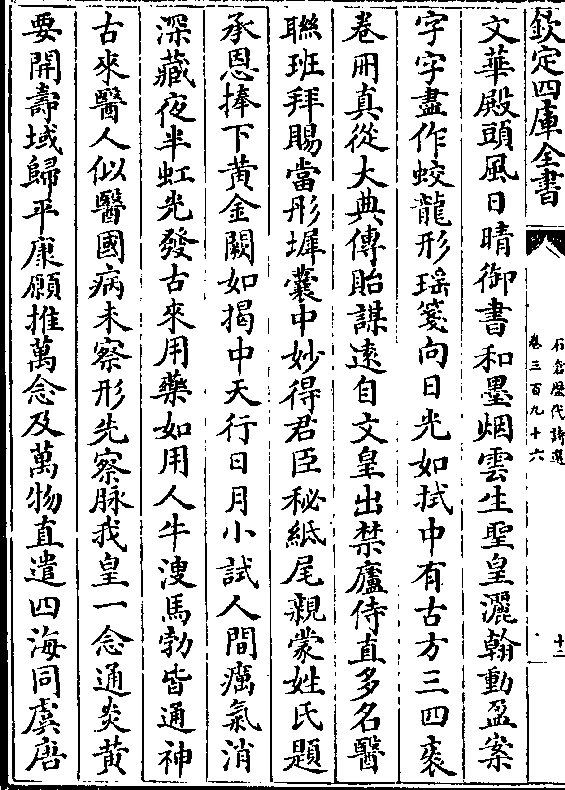 欽定四庫全書
石倉歷代詩選
卷三百九十六
十二
文華殿頭風日晴御書和墨烟雲生聖皇灑翰動盈案
字字盡作蛟龍形瑶箋向日光如拭中有古方三四袠
卷冊真從大典傳貽謀遠自文皇出禁廬侍直多名醫
聯班拜賜當彤墀囊中妙得君臣秘紙尾親蒙姓氏題
承恩捧下黄金闕如揭中天行日月小試人間癘氣消
深藏夜半虹光發古來用藥如用人牛溲馬勃皆通神
古來醫人似醫國病未察形先察脉我皇一念通炎黄
要開壽域歸平康願推萬念及萬物直遣四海同虞唐